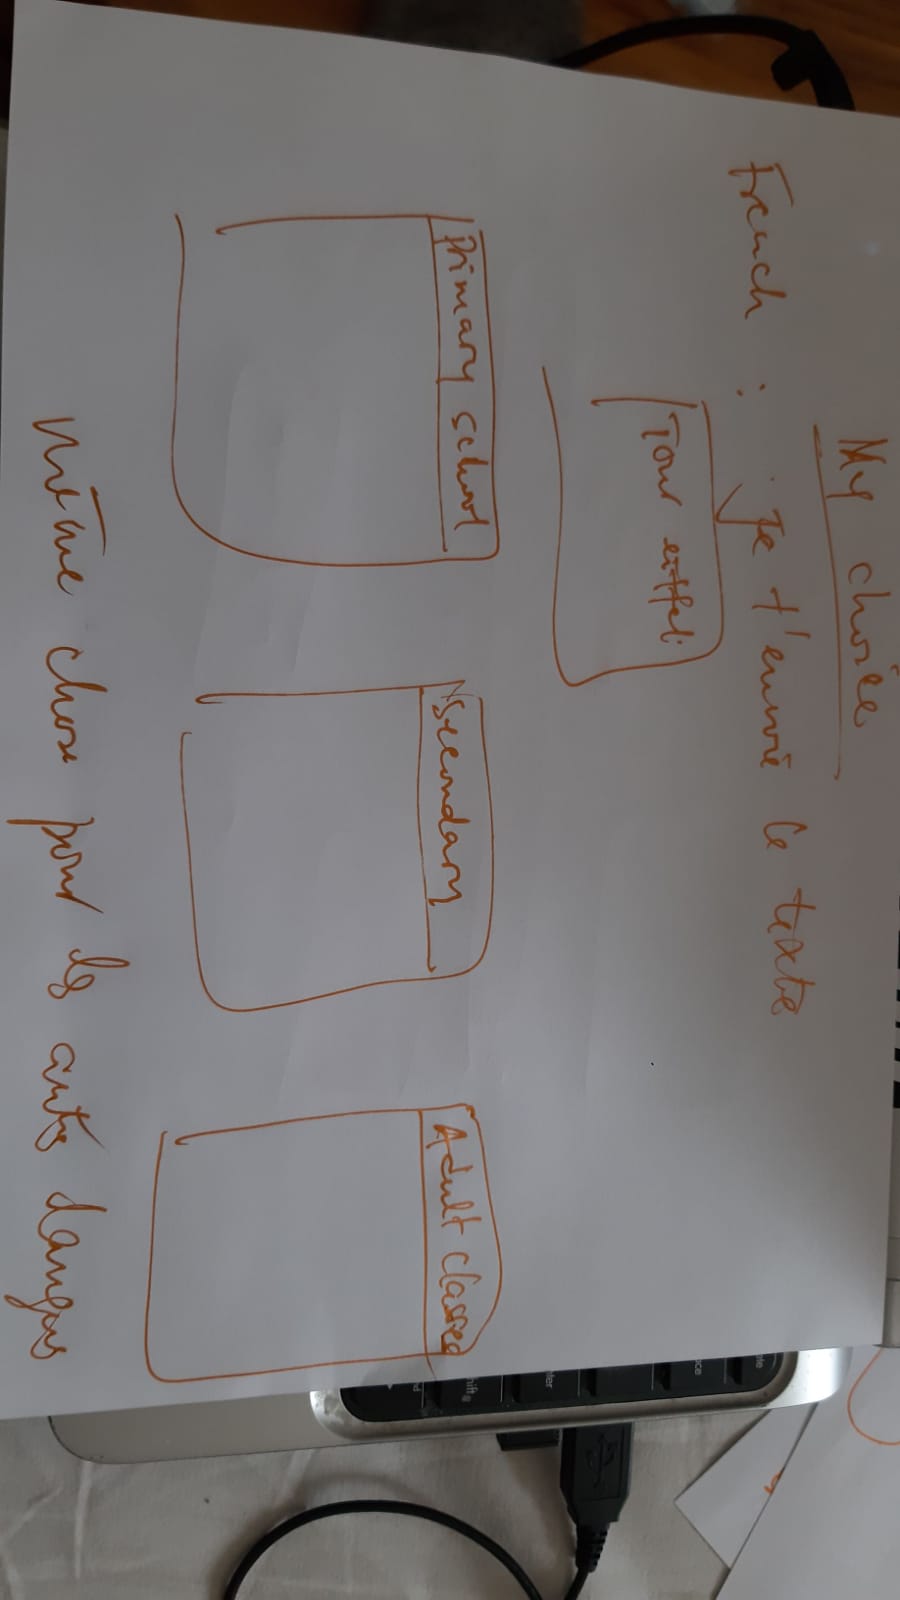 My choice
French : Je t'envoie le texte
Tour eiffel
Primary school
Secondary
Adult Classes
même chose pour les autres langues